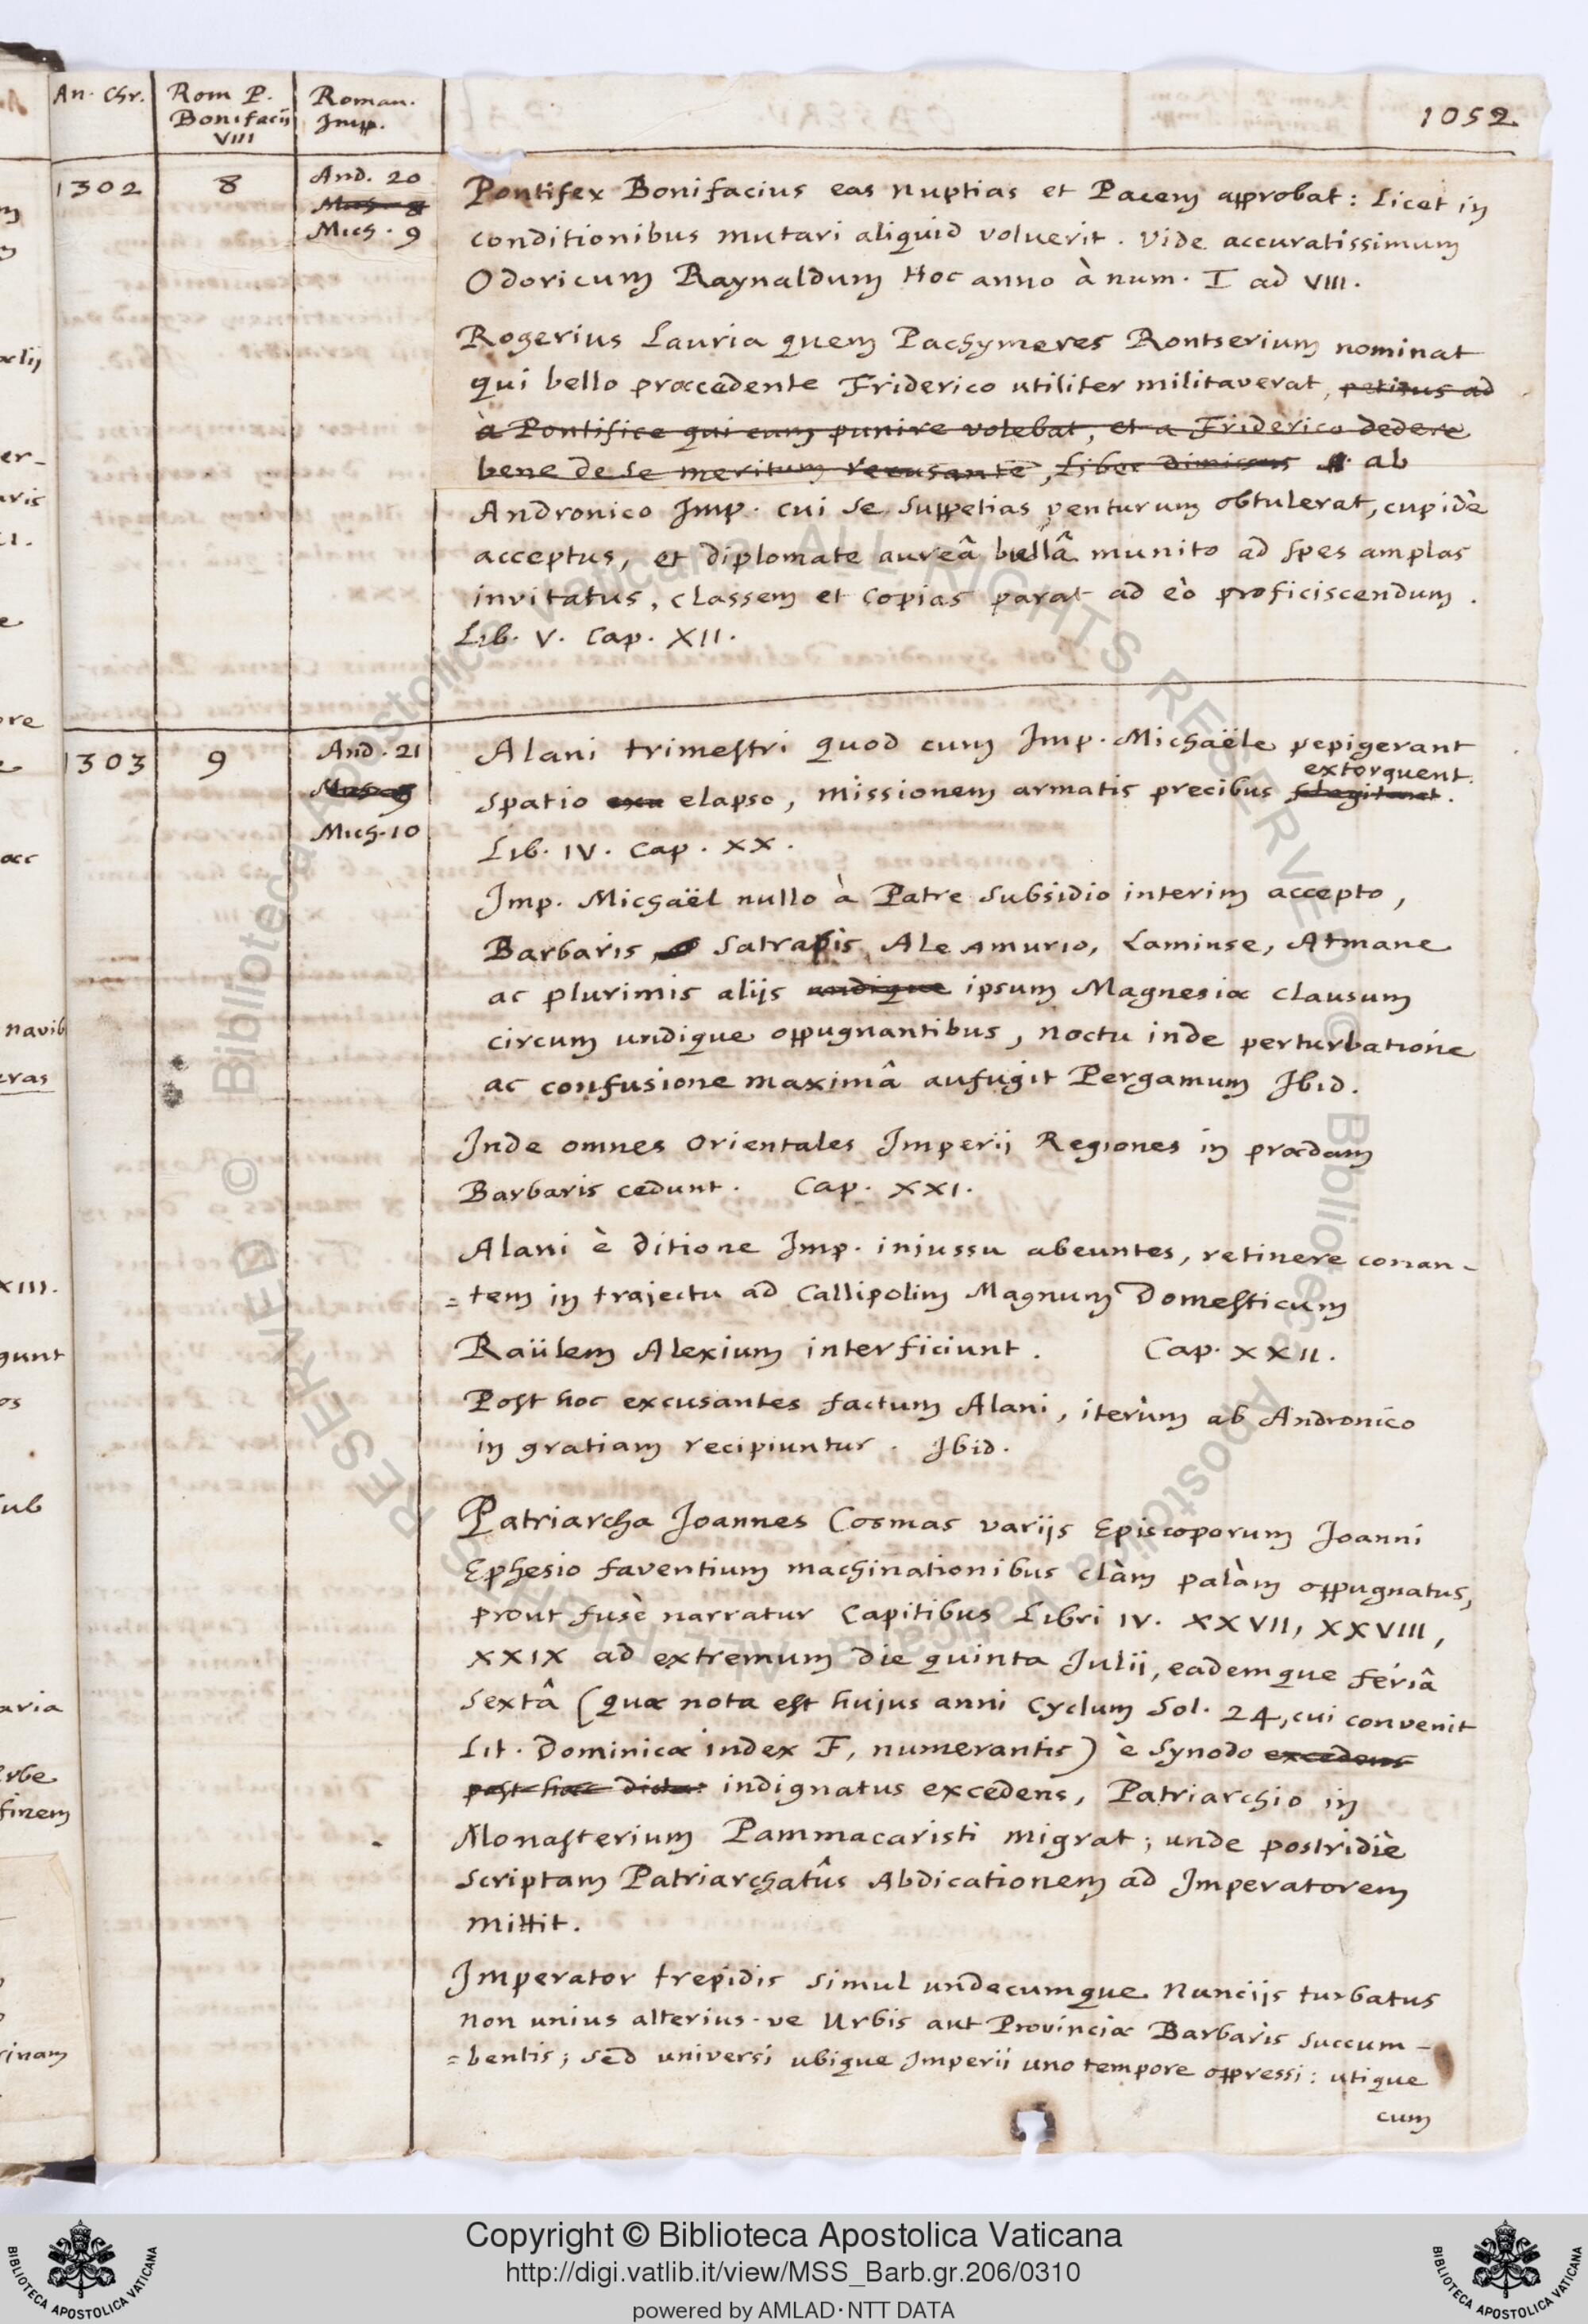 An. Chr. Rom P. Bonifacij VIII Roman. Imp. 1052
1302 8 And. 20
Mich. 9
Pontifex Bonifacius eas nuptias et Pacem approbat: Licet in
conditionibus mutari aliquid voluerit. Vide accuratissimum
Odoricum Raynaldum Hoc anno à num. I ad VIII.
Rogerius Lauria quem Pachymeres Rontserium nominat
qui bello præcedente Friderico utiliter militaverat, petitus ad
à Pontifice qui eum punire volebat, et a Friderico dedere
bene de se meritum recusante, liber ab
Andronico Imp. cui se suppetias venturum obtulerat, cupidè
acceptus, et diplomate aureâ bullâ munito ad spes amplas
invitatus, classem et copias parat ad eò proficiscendum.
Lib. V. Cap. XII.
1303 9 And. 21
Mich. 10
Alani trimestri quod cum Imp. Michaële pepigerant
extorquent.
spatio elapso, missionem armatis precibus flagitant.
Lib. IV. Cap. XX.
Imp. Michaël nullo à Patre subsidio interim accepto,
Barbaris, Satrapis, Ale Amurio, Laminse, Atmane
ac plurimis alijs undique ipsum Magnesiæ clausum
circum undique oppugnantibus, noctu inde perturbatione
ac confusione maximâ aufugit Pergamum Ibid.
Inde omnes Orientales Imperij Regiones in prædam
Barbaris cedunt. Cap. XXI.
Alani è ditione Imp. injussu abeuntes, retinere conan-
=tem in trajectu ad Callipolim Magnum Domesticum
Raülem Alexium interficiunt. Cap. XXII.
Post hoc excusantes factum Alani, iterùm ab Andronico
in gratiam recipiuntur. Ibid.
Patriarcha Joannes Cosmas varijs Episcoporum Joanni
Ephesio faventium machinationibus clàm palàm oppugnatus,
prout fusè narratur Capitibus Libri IV. XXVII, XXVIII,
XXIX ad extremum die quinta Julii, eademque feriâ
sextâ (quæ nota est hujus anni Cyclum Sol. 24, cui convenit
Lit. Dominicæ index F, numerantis) è Synodo excedens
post hæc dicta indignatus excedens, Patriarchio in
Monasterium Pammacaristi migrat; unde postridiè
scriptam Patriarchatûs Abdicationem ad Imperatorem
mittit.
Imperator trepidis simul undecumque Nuncijs turbatus
non unius alterius-ve Urbis aut Provinciæ Barbaris succum-
=bentis; sed universi ubique Imperii uno tempore oppressi: utique
cum
Copyright © Biblioteca Apostolica Vaticana
http://digi.vatlib.it/view/MSS_Barb.gr.206/0310
powered by AMLAD·NTT DATA